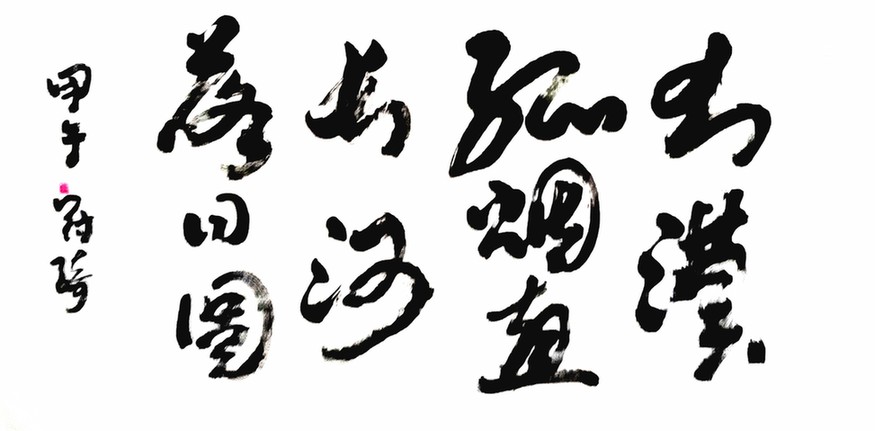 大漠
孤烟直
长河
落日圆
甲午